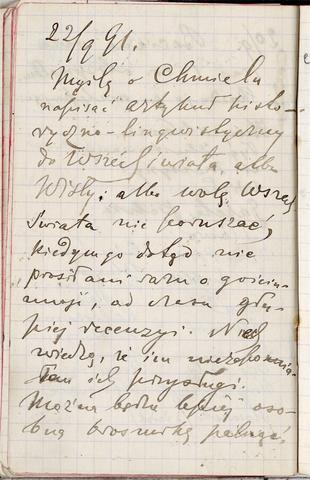 22/9 91.
Myślę o Chmielu
napisać artykuł histo-
ryczno-lingwistyczny
do Wszechświata, albo
Wisły; albo wolę Wszech
świata nie poruszać,
kiedym go dotąd nie
prosił ani razu o gościn-
ność, od czasu głu-
piej recenzyi. Niech
wiedzą, że im nie zapomnia-
łem ich przysługi.
Można będzie lepiej oso-
bną broszurkę palnąć.